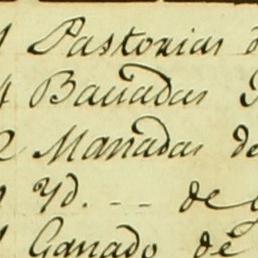 Pastorias d
4 Bañadas
2 Manadas de
Yd. - - - de g
Ganado de